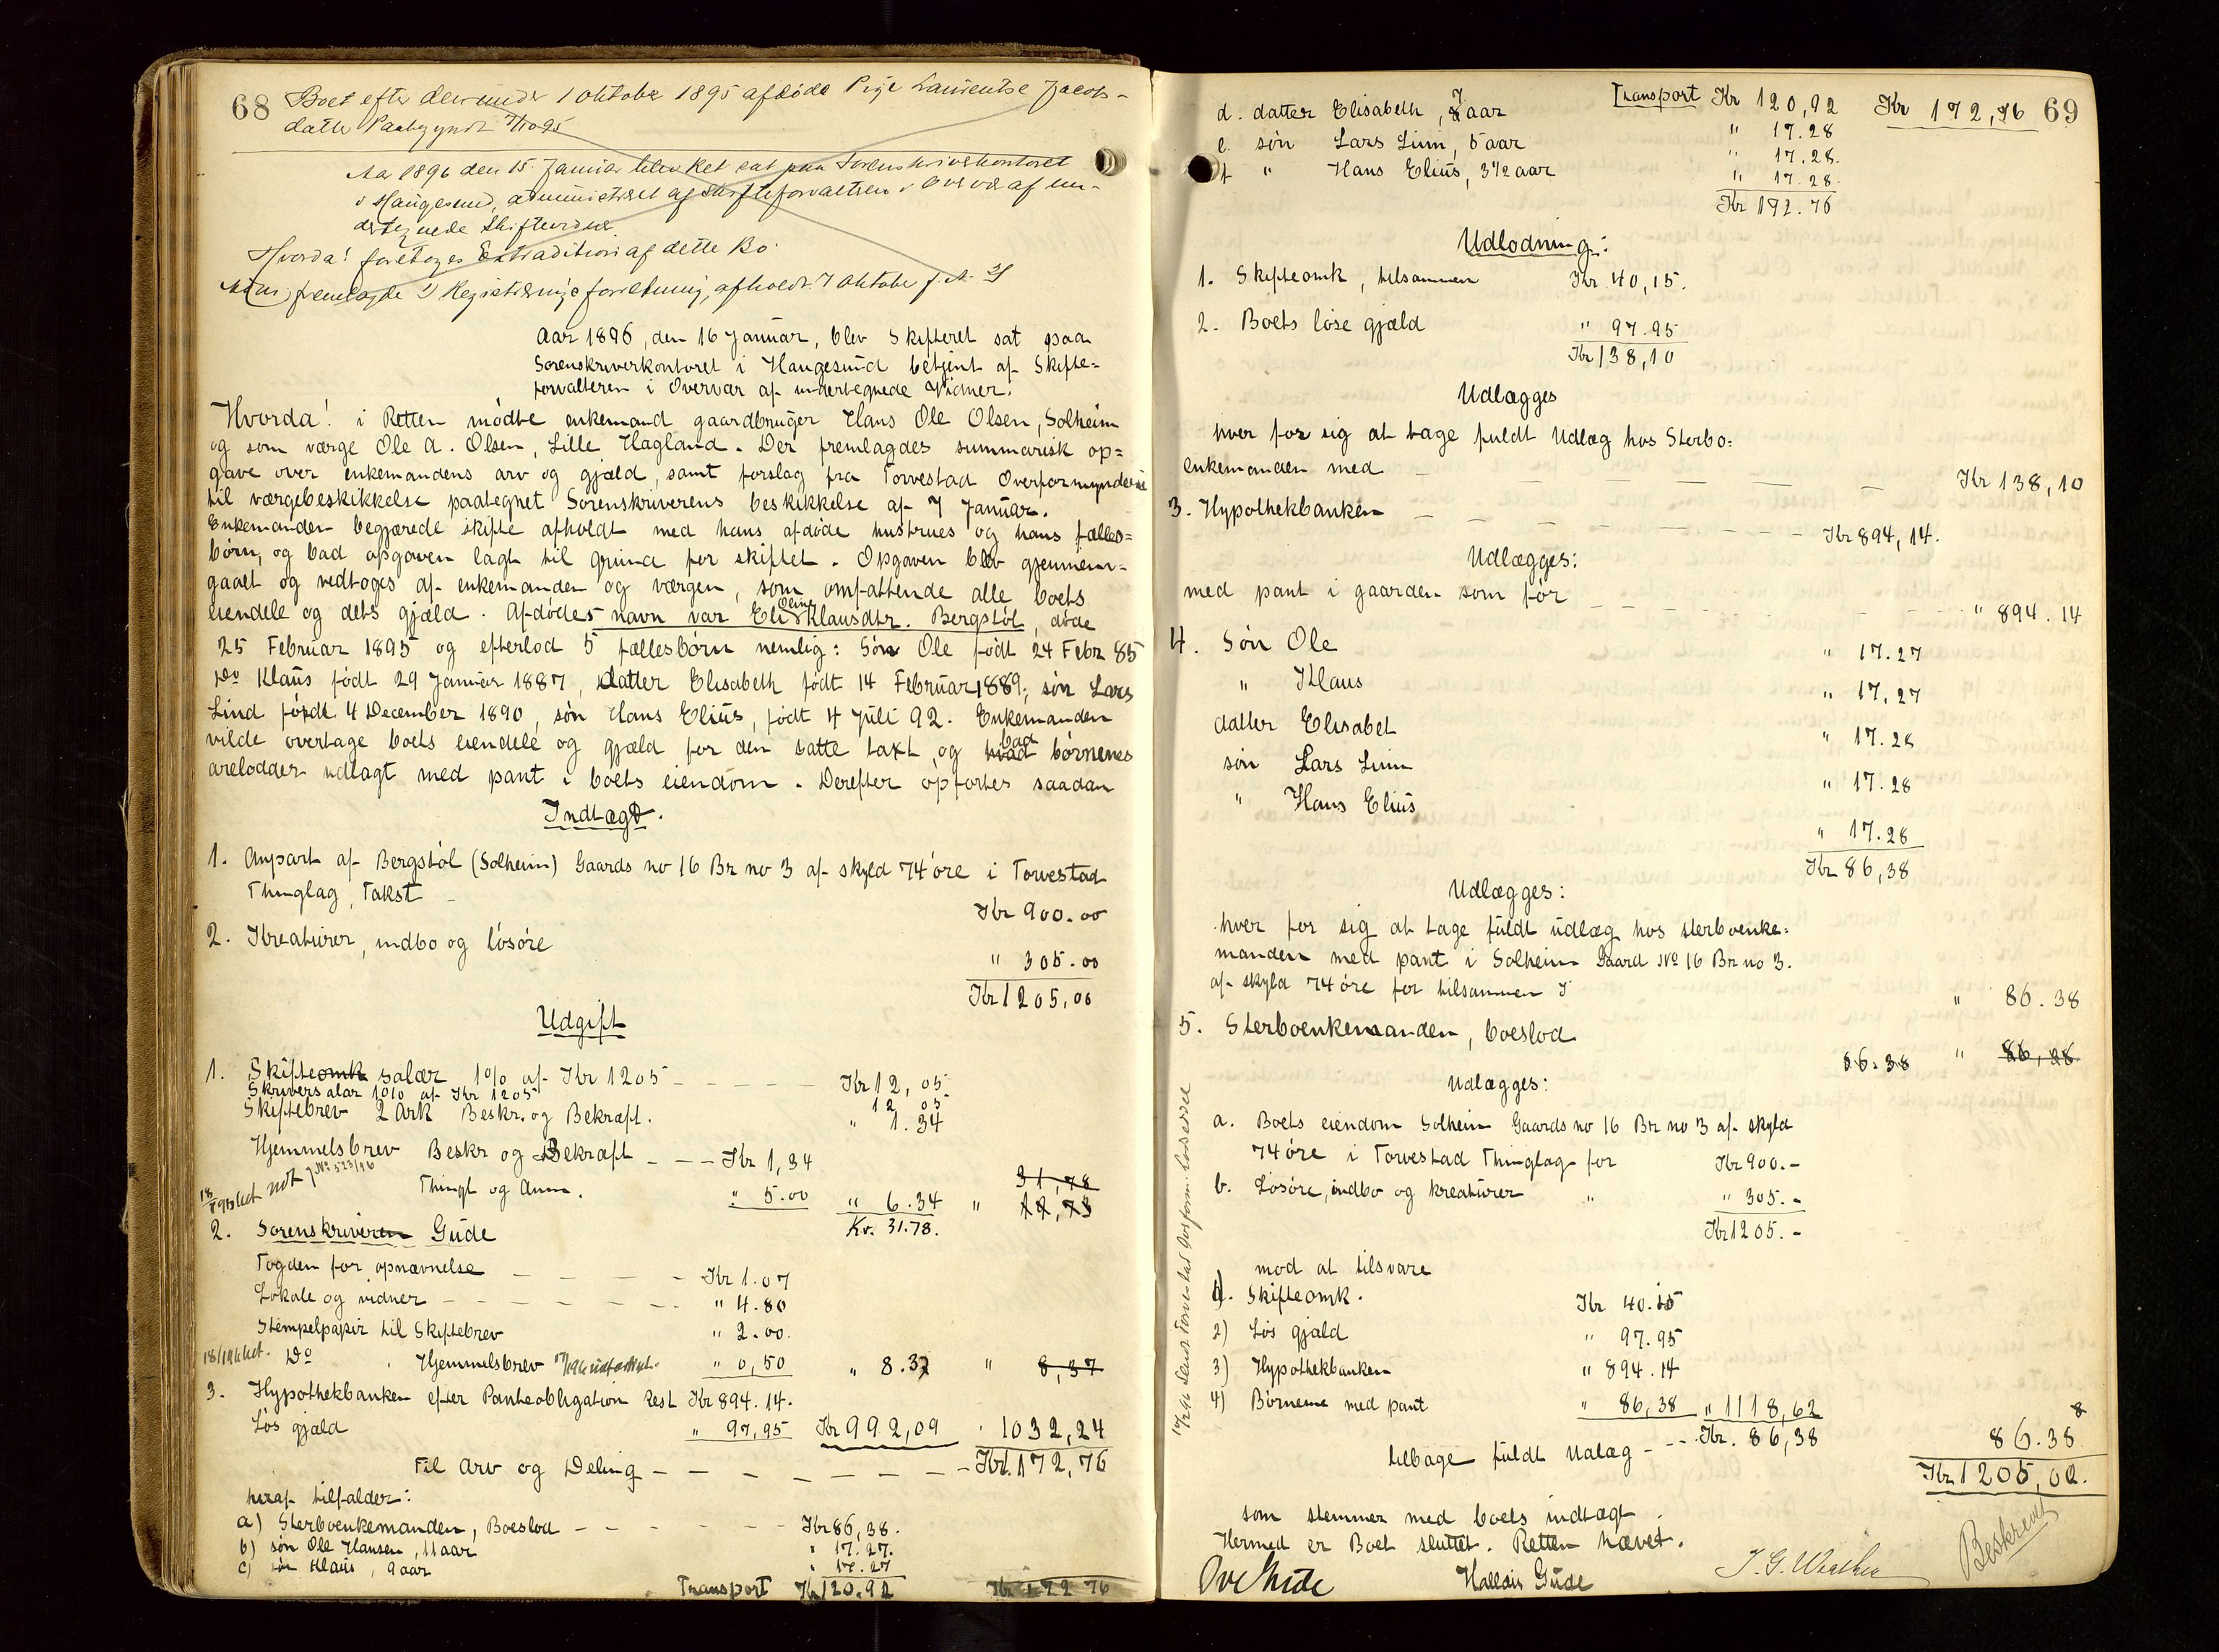 68 Boet efter den under 1 Oktober 1895 afdøde Pige Laurentse Jacobs-
datter Paabegyndt 7/10 95
Aar 1896 den 15 Januar blev Ret sat paa Sorenskriverkontoret
i Haugesund, administreret af Skifteforvalteren i Overvær af un-
dertegnede Skiftevidner.
Hvorda! foretoges Extradition af dette Bo
fremlagde 1) Registreringsforretning, afholdt 7 Oktober f. A.
Aar 1896, den 16 Januar, blev Skifteret sat paa
Sorenskriverkontoret i Haugesund betjent af Skifte=
forvalteren i Overvær af undertegnede Vidner.
Hvorda! i Retten mødte enkemand gaardbruger Hans Ole Olsen, Solheim
og som værge Ole A. Olsen, Lille Hagland. Der fremlagdes summarisk op=
gave over enkemandens arv og gjæld, samt forslag fra Torvestad Overformynderi
til værgebeskikkelse paategnet Sorenskriverens beskikkelse af 7 Januar.
Enkemanden begjærede skifte afholdt med hans afdøde hustrues og hans fælles=
børn, og bad opgaven lagt til grund for skiftet. Opgaven blev gjennem-
gaaet og vedtoges af enkemanden og værgen, som omfattende alle boets
eiendele og dets gjæld. Afdødes navn var Eli Oline Klausdtr. Bergstøl, døde
25 Februar 1895 og efterlod 5 fællesbørn nemlig: Søn Ole født 24 Febr 85
Do Klaus født 29 Januar 1887, datter Elisabeth født 14 Februar 1889; søn Lars
Lind født 4 December 1890, søn Hans Elius, født 4 Juli 92. Enkemanden
vilde overtage boets eiendele og gjæld for den satte taxt, og bad børnenes
arelodder udlagt med pant i boets eiendom. Derefter opførtes saadan
Indtægt.
1. Anpart af Bergstøl (Solheim) Gaards no 16 Br no 3 af skyld 74 øre i Torvestad
Thinglag, Takst Kr 900.00
2. Kreaturer, indbo og løsøre " 305.00
Kr 1205,00
Udgift
1. Skifteomk salær 1% af Kr 1205 Kr 12,05
Skriversalær 1% af Kr 1205 12 05
Skiftebrev 2 Ark Beskr. og Bekræft. " 1.34
Hjemmelsbrev Beskr og Bekræft Kr 1,34 31,78
Thingl og Anm. " 5.00 " 6.34 "
Kr. 31.78.
2. Sorenskriveren Gude
Fogden for opnævnelse Kr 1.07
Lokale og vidner " 4.80
Stempelpapir til Skiftebrev " 2.00.
Do Hjemmelsbrev " 0,50 " 8.37 " 8,37
3. Hypothekbanken efter Pantheobligation Rest Kr 894.14.
Løs gjæld " 97,95 Kr 992,09 " 1032,24
Til Arv og Deling Kr. 172,76
heraf tilfalder:
a) Sterboenkemanden, Boeslod Kr 86,38.
b) søn Ole Hansen, 11 aar " 17.27.
c) søn Klaus, 9 aar " 17.27
Transport Kr 120.92 Kr 172 76
Transport Kr 120,92 Kr 172,76 69
d. datter Elisabeth, 7 aar " 17.28
e. søn Lars Linn, 5 aar " 17.28.
f " Hans Elius, 3 1/2 aar " 17.28.
Kr 172.76
Udlodning:
1. Skifteomk, tilsammen Kr. 40,15.
2. Boets løse gjæld " 97.95
Kr 138,10
Udlægges
hver for sig at tage fuldt Udlæg hos Sterbo=
enkemanden med Kr 138,10
3. Hypothekbanken Kr 894,14.
Udlægges:
med pant i gaarden som før " 894.14
4. Søn Ole " 17.27
" Klaus " 17.27
datter Elisabet " 17.28
søn Lars Linn " 17.28
" Hans Elius " 17.28
Kr 86,38
Udlægges:
hver for sig at tage fuldt udlæg hos sterboenke=
manden med pant i Solheim Gaard No 16 Br no 3.
af skyld 74 øre for tilsammen " 86.38
5. Sterboenkemanden, boeslod 86.38 "
Udlægges:
a. Boets eiendom Solheim Gaards no 16 Br no 3 af skyld
74 øre i Torvestad Thinglag for Kr 900.-
b. Løsøre, indbo og kreaturer " " 305.-
Kr 1205.-
mod at tilsvare
1). Skifteomk. Kr 40.15
2) Løs gjæld " 97.95
3) Hypothekbanken " 894.14
4) Børnene med pant " 86,38 " 1118,62
tilbage fuldt Udlæg Kr. 86,38 86.38
Kr 1205,00.
som stemmer med boets indtægt.
Hermed er Boet sluttet. Retten hævet.
Beskrevet
Ove Gude Halldis Gude